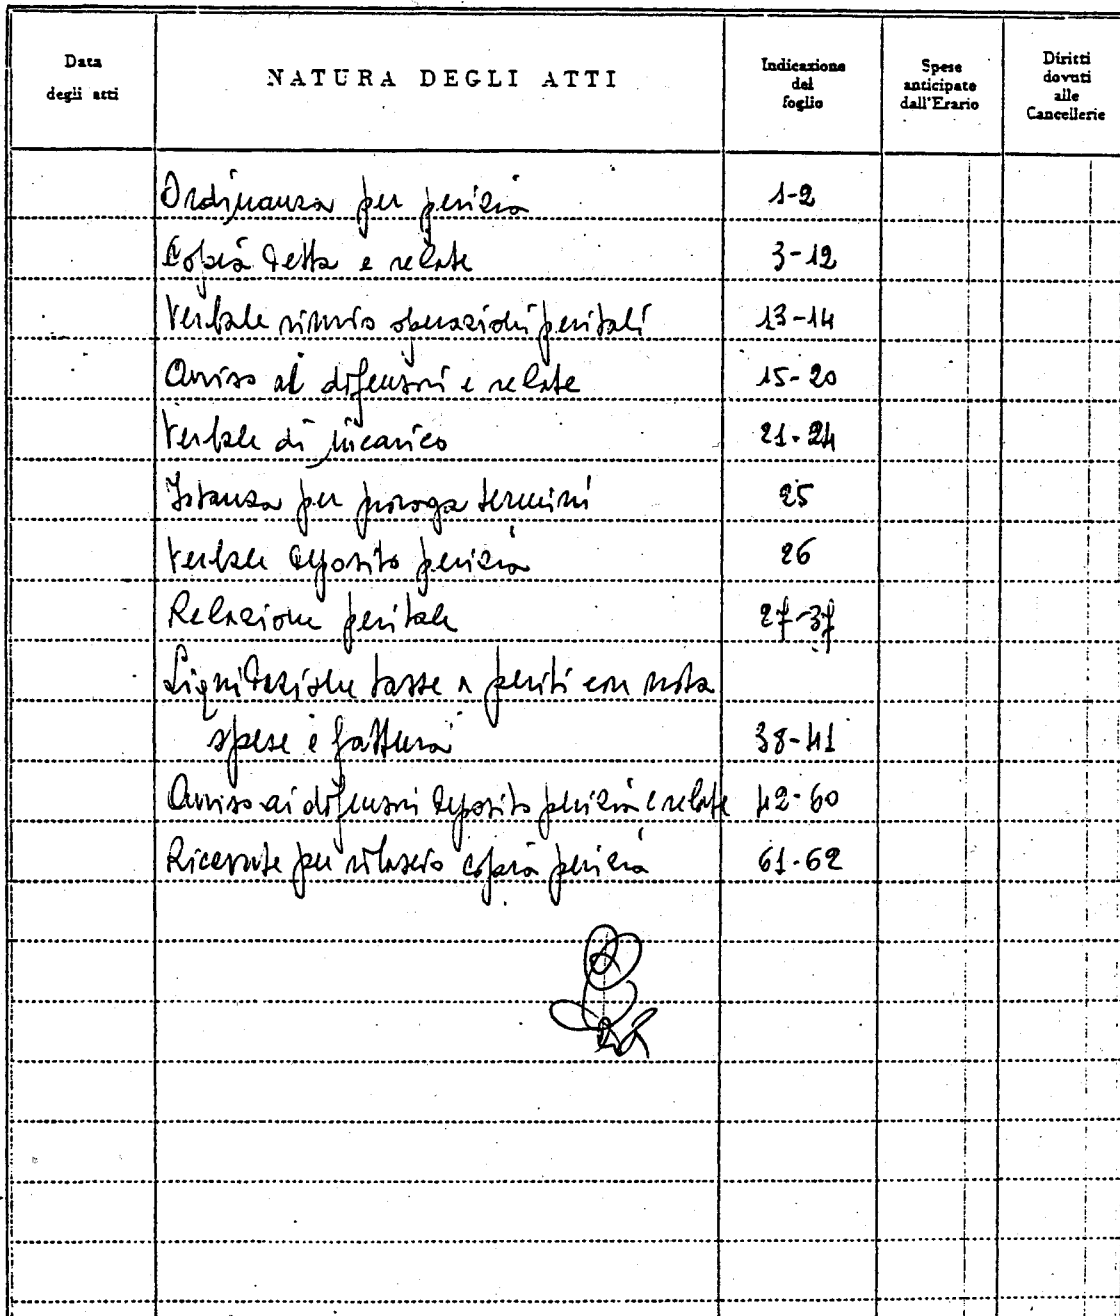 Data degli atti NATURA DEGLI ATTI Indicazione del foglio Spese anticipate dall'Erario Diritti dovuti alle Cancellerie
Ordinanza per perizia 1-2
Copia detta e relate 3-12
Verbale rinvio operazioni peritali 13-14
Avviso ai difensori e relate 15-20
Verbale di incarico 21-24
Istanza per proroga termini 25
Verbale deposito perizia 26
Relazione peritale 27-37
Liquidazione tasse a periti con nota
spese e fattura 38-41
Avviso ai difensori deposito perizia e relate 42-60
Ricevute per rilascio copia perizia 61-62